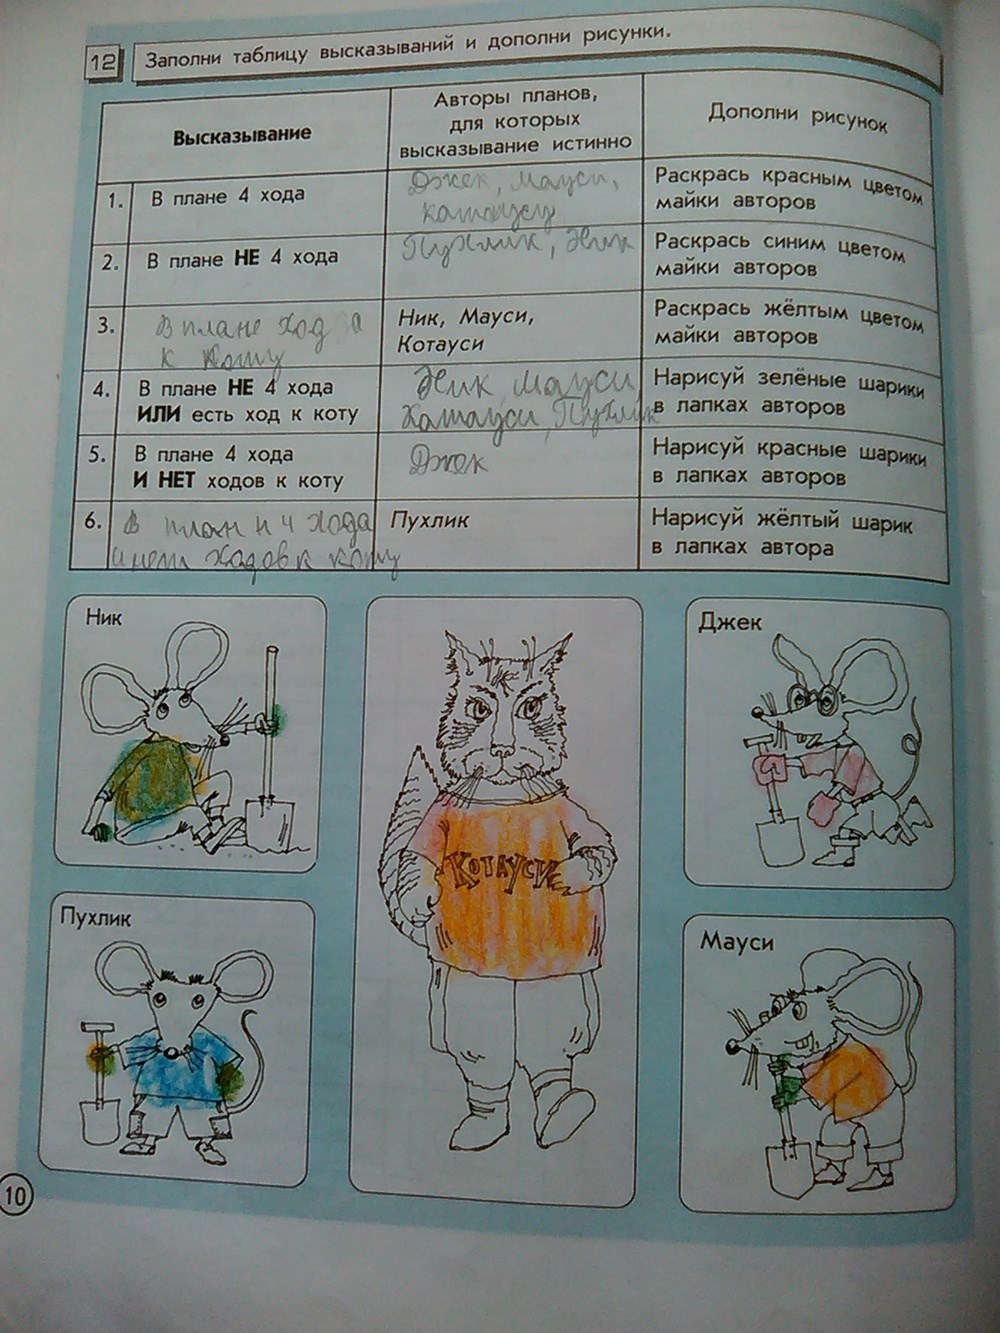 12
Заполни таблицу высказываний и дополни рисунки.
Высказывание
Авторы планов,
для которых
высказывание истинно
Дополни рисунок
1.
В плане 4 хода
Джек, Мауси,
котауси
Раскрась красным цветом
майки авторов
2.
В плане НЕ 4 хода
Пухлик, Ник
Раскрась синим цветом
майки авторов
3.
В плане ход
к коту
Ник, Мауси,
Котауси
Раскрась жёлтым цветом
майки авторов
4.
В плане НЕ 4 хода
ИЛИ есть ход к коту
Ник Мауси
Котауси, Пухлик
Нарисуй зелёные шарики
в лапках авторов
5.
В плане 4 хода
И НЕТ ходов к коту
Джек
Нарисуй красные шарики
в лапках авторов
6.
В план н 4 хода
и нет ходов к коту
Пухлик
Нарисуй жёлтый шарик
в лапках автора
Ник
Джек
Котауси
Пухлик
Мауси
10